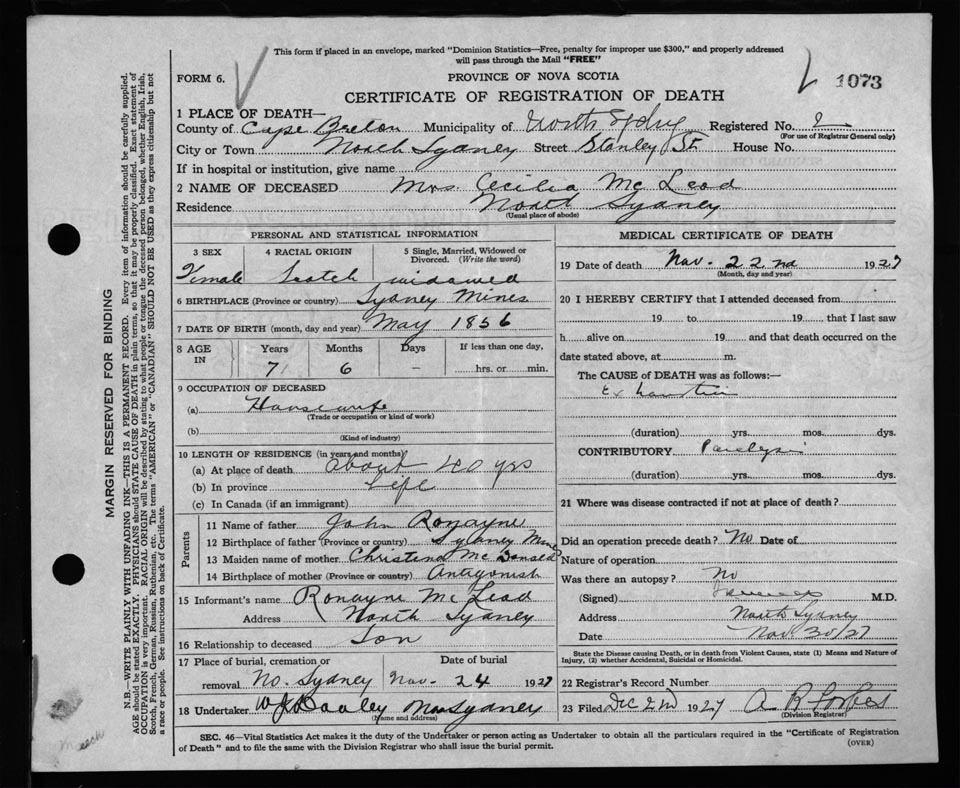 This form if placed in an envelope, marked "Dominion Statistics—Free, penalty for improper use $300," and properly addressed
will pass through the Mail "FREE"
FORM 6.
PROVINCE OF NOVA SCOTIA
1073
CERTIFICATE OF REGISTRATION OF DEATH
1 PLACE OF DEATH—
County of Cape Breton Municipality of North Sydney Registered No.
(For use of Registrar General only)
City or Town North Sydney Street Stanley St. House No.
If in hospital or institution, give name
2 NAME OF DECEASED Mrs. Cecilia McLeod
Residence North Sydney
(Usual place of abode)
PERSONAL AND STATISTICAL INFORMATION
3 SEX 4 RACIAL ORIGIN 5 Single, Married, Widowed or Divorced. (Write the word)
Female Scotch widowed
6 BIRTHPLACE (Province or country) Sydney Mines
7 DATE OF BIRTH (month, day and year) May 1856
8 AGE IN Years Months Days If less than one day,
71 6 — hrs. or min.
9 OCCUPATION OF DECEASED
(a) Housewife
(Trade or occupation or kind of work)
(b)
(Kind of industry)
10 LENGTH OF RESIDENCE (in years and months)
(a) At place of death about 40 yrs
(b) In province Life
(c) In Canada (if an immigrant)
Parents
11 Name of father John Ronayne
12 Birthplace of father (Province or country) Sydney Mines
13 Maiden name of mother Christina McDonald
14 Birthplace of mother (Province or country) Antigonish
15 Informant's name Ronayne McLeod
Address North Sydney
16 Relationship to deceased Son
17 Place of burial, cremation or removal No. Sydney Date of burial Nov. 24 1927
18 Undertaker W J Dooley Nor Sydney
(Name and address)
MEDICAL CERTIFICATE OF DEATH
19 Date of death Nov. 22nd 1927
(Month, day and year)
20 I HEREBY CERTIFY that I attended deceased from
19 to 19 that I last saw
h alive on 19 and that death occurred on the
date stated above, at m.
The CAUSE of DEATH was as follows:—
Exhaustion
(duration) yrs. mos. dys.
CONTRIBUTORY Paralysis
(duration) yrs. mos. dys.
21 Where was disease contracted if not at place of death?
Did an operation precede death? No Date of
Nature of operation
Was there an autopsy? No
(Signed) M.D.
Address North Sydney
Date Nov 30/27
State the Disease causing Death, or in death from Violent Causes, state (1) Means and Nature of
Injury, (2) whether Accidental, Suicidal or Homicidal.
22 Registrar's Record Number
23 Filed Dec 2nd 1927 A R Forbes
(Division Registrar)
SEC. 46—Vital Statistics Act makes it the duty of the Undertaker or person acting as Undertaker to obtain all the particulars required in the "Certificate of Registration
of Death" and to file the same with the Division Registrar who shall issue the burial permit.
(OVER)
MARGIN RESERVED FOR BINDING
N.B.—WRITE PLAINLY WITH UNFADING INK—THIS IS A PERMANENT RECORD. Every item of information should be carefully supplied.
AGE should be stated EXACTLY. PHYSICIANS should STATE CAUSE OF DEATH in plain terms, so that it may be properly classified. Exact statement of
OCCUPATION is very important. RACIAL ORIGIN will be described by stating to what people or tongue the deceased person belonged, whether English, Irish,
Scotch, French, German, Russian, Ruthenian, etc. The terms "AMERICAN" or "CANADIAN" SHOULD NOT BE USED as they express citizenship but not
a race or people. See instructions on back of Certificate.